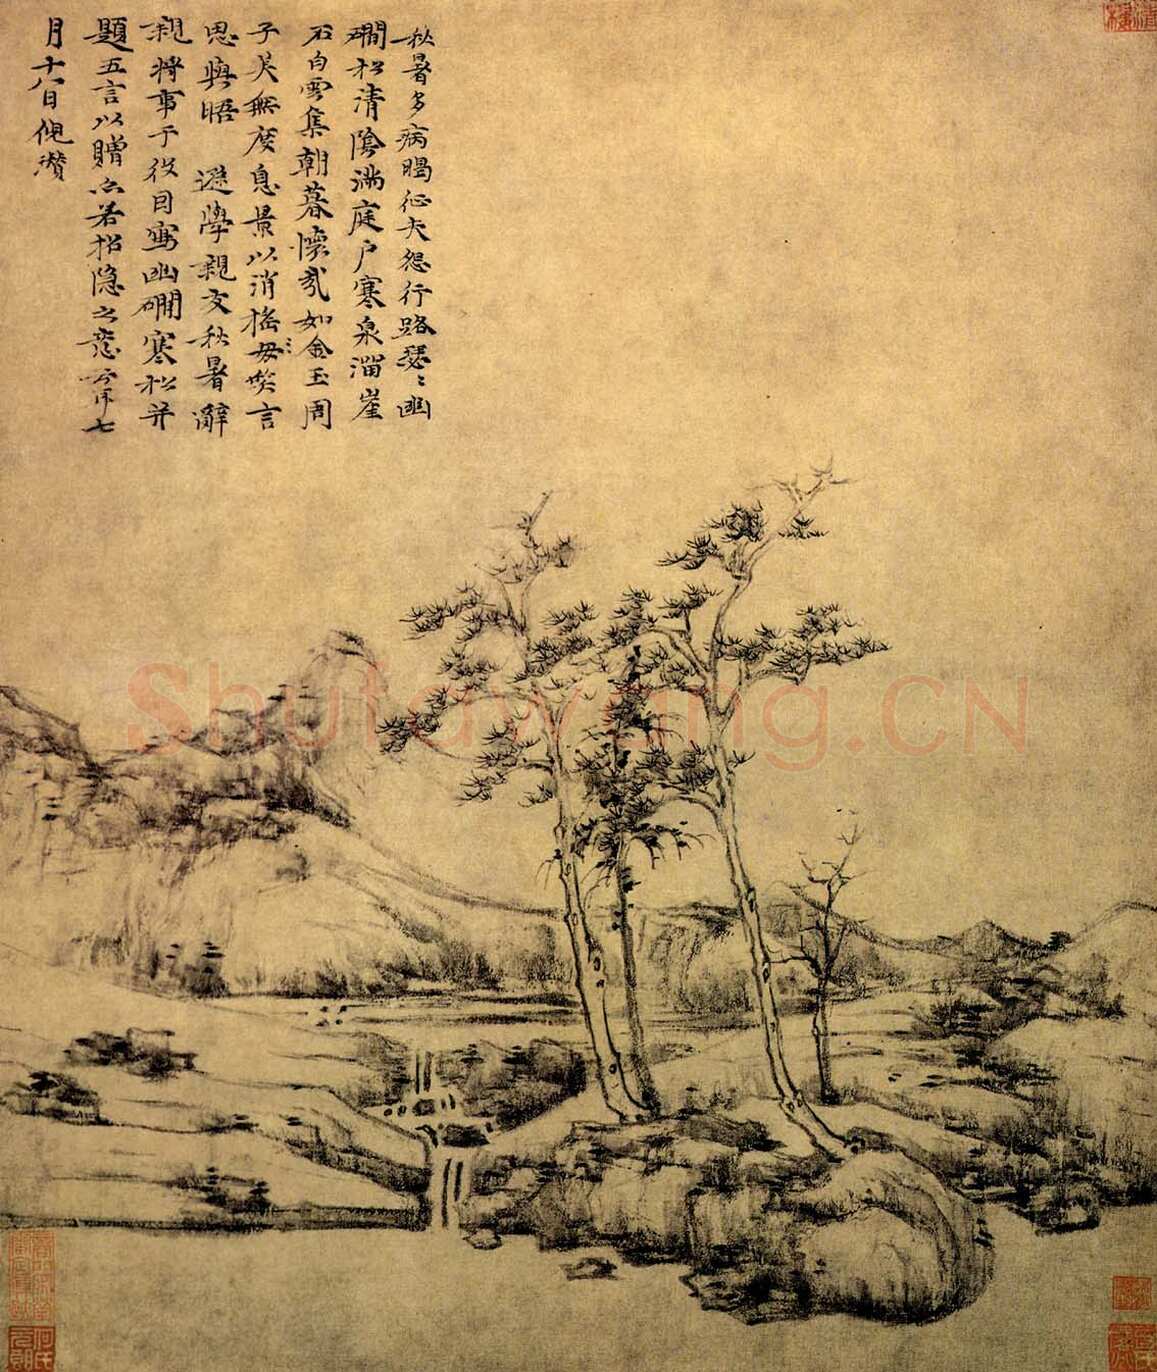 秋暑多病暍征夫怨行路瑟〻幽
磵松清陰滿庭戶寒泉溜崖
石白雲集朝暮懷哉如金玉周
子美無度息景以消搖毋發言
思與晤 遜學親友秋暑辭
親將事于役因寫幽磵寒松并
題五言以贈亦若招隱之意云耳七
月十八日倪瓚
Shufawang.CN